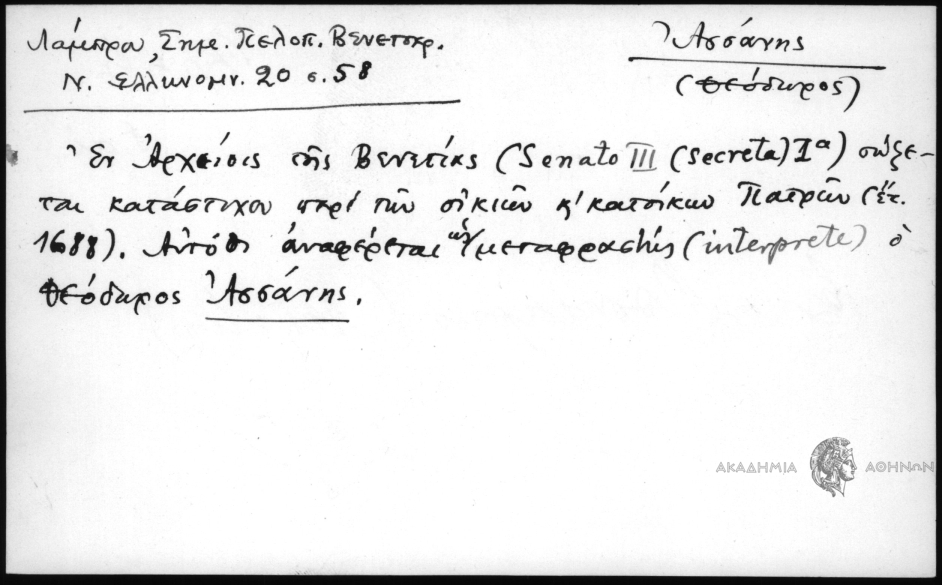 Λάμπρου, Σημ. Πελοπ. Βενετοκρ.
Ν. Ἑλληνομν. 20 σ. 58
Ἀσσάνης
(Θεόδωρος)
Ἐν Ἀρχείοις τῆς Βενετίας (Senato III (secreta) 1ᵃ) σώζε-
ται κατάστιχον περί τῶν οἰκιῶν κ' κατοίκων Πατρῶν (ἔτ.
1688). Αὐτόθι ἀναφέρεται ὡς μεταφραστής (interprete) ὁ
Θεόδωρος Ἀσσάνης.
ΑΚΑΔΗΜΙΑ ΑΘΗΝΩΝ